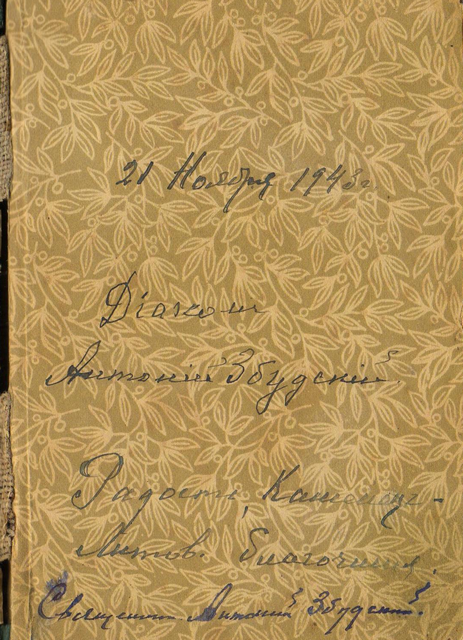 21 Ноября 1943 г
Діакон
Антоній Збудскій.
Радость, Каменец-
Литов. благочиния.
Священник Антоній Збудский.